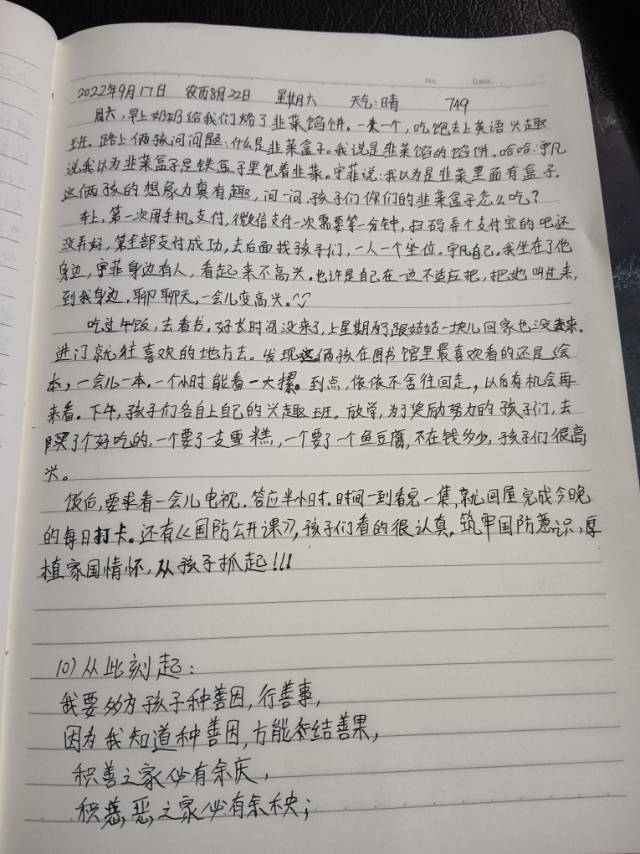 No. Date.
2022年9月17日 农历8月22日 星期六 天气:晴 749
周六,早上奶奶给我们烙了韭菜馅饼.一来一个,吃饱去上英语兴趣
班.路上俩孩问问题:什么是韭菜盒子.我说是韭菜馅的馅饼.哈哈:宇凡
说我以为韭菜盒子是铁盒子里包着韭菜.宇菲说:我以为是韭菜里面有盒子.
这俩孩的想象力真有趣,问一问,孩子们你们的韭菜盒子怎么吃?
车上,第一次用手机支付,微信支付一次需要等一分钟,扫码弄个支付宝的吧还
没弄好,等全部支付成功,去后面找孩子们,一人一个坐位.宇凡自己,我坐在了他
身边,宇菲身边有人,看起来不高兴.也许是自己在一边不适应把,把她叫过来,
到我身边,聊聊天,一会儿变高兴.
吃过午饭,去看书,好长时间没来了,上星期为了跟姑姑一块儿回家也没来.
进门就往喜欢的地方去.发现这俩孩在图书馆里最喜欢看的还是绘
本,一会儿一本.一个小时能看一大摞.到点,依依不舍往回走,以后有机会再
来看.下午,孩子们各自上自己的兴趣班.放学,为了奖励努力的孩子们,去
买了个好吃的,一个要了一支雪糕,一个要了一个鱼豆腐,不在钱多少,孩子们很高
兴.
饭后,要求看一会儿电视.答应半小时.时间一到看完一集,就回屋完成今晚
的每日打卡.还有《国防公开课》,孩子们看的很认真.筑牢国防意识,厚
植家国情怀,从孩子抓起!!!
10)从此刻起:
我要多为孩子种善因,行善事,
因为我知道种善因,方能结善果,
积善之家必有余庆,
积恶之家必有余殃;